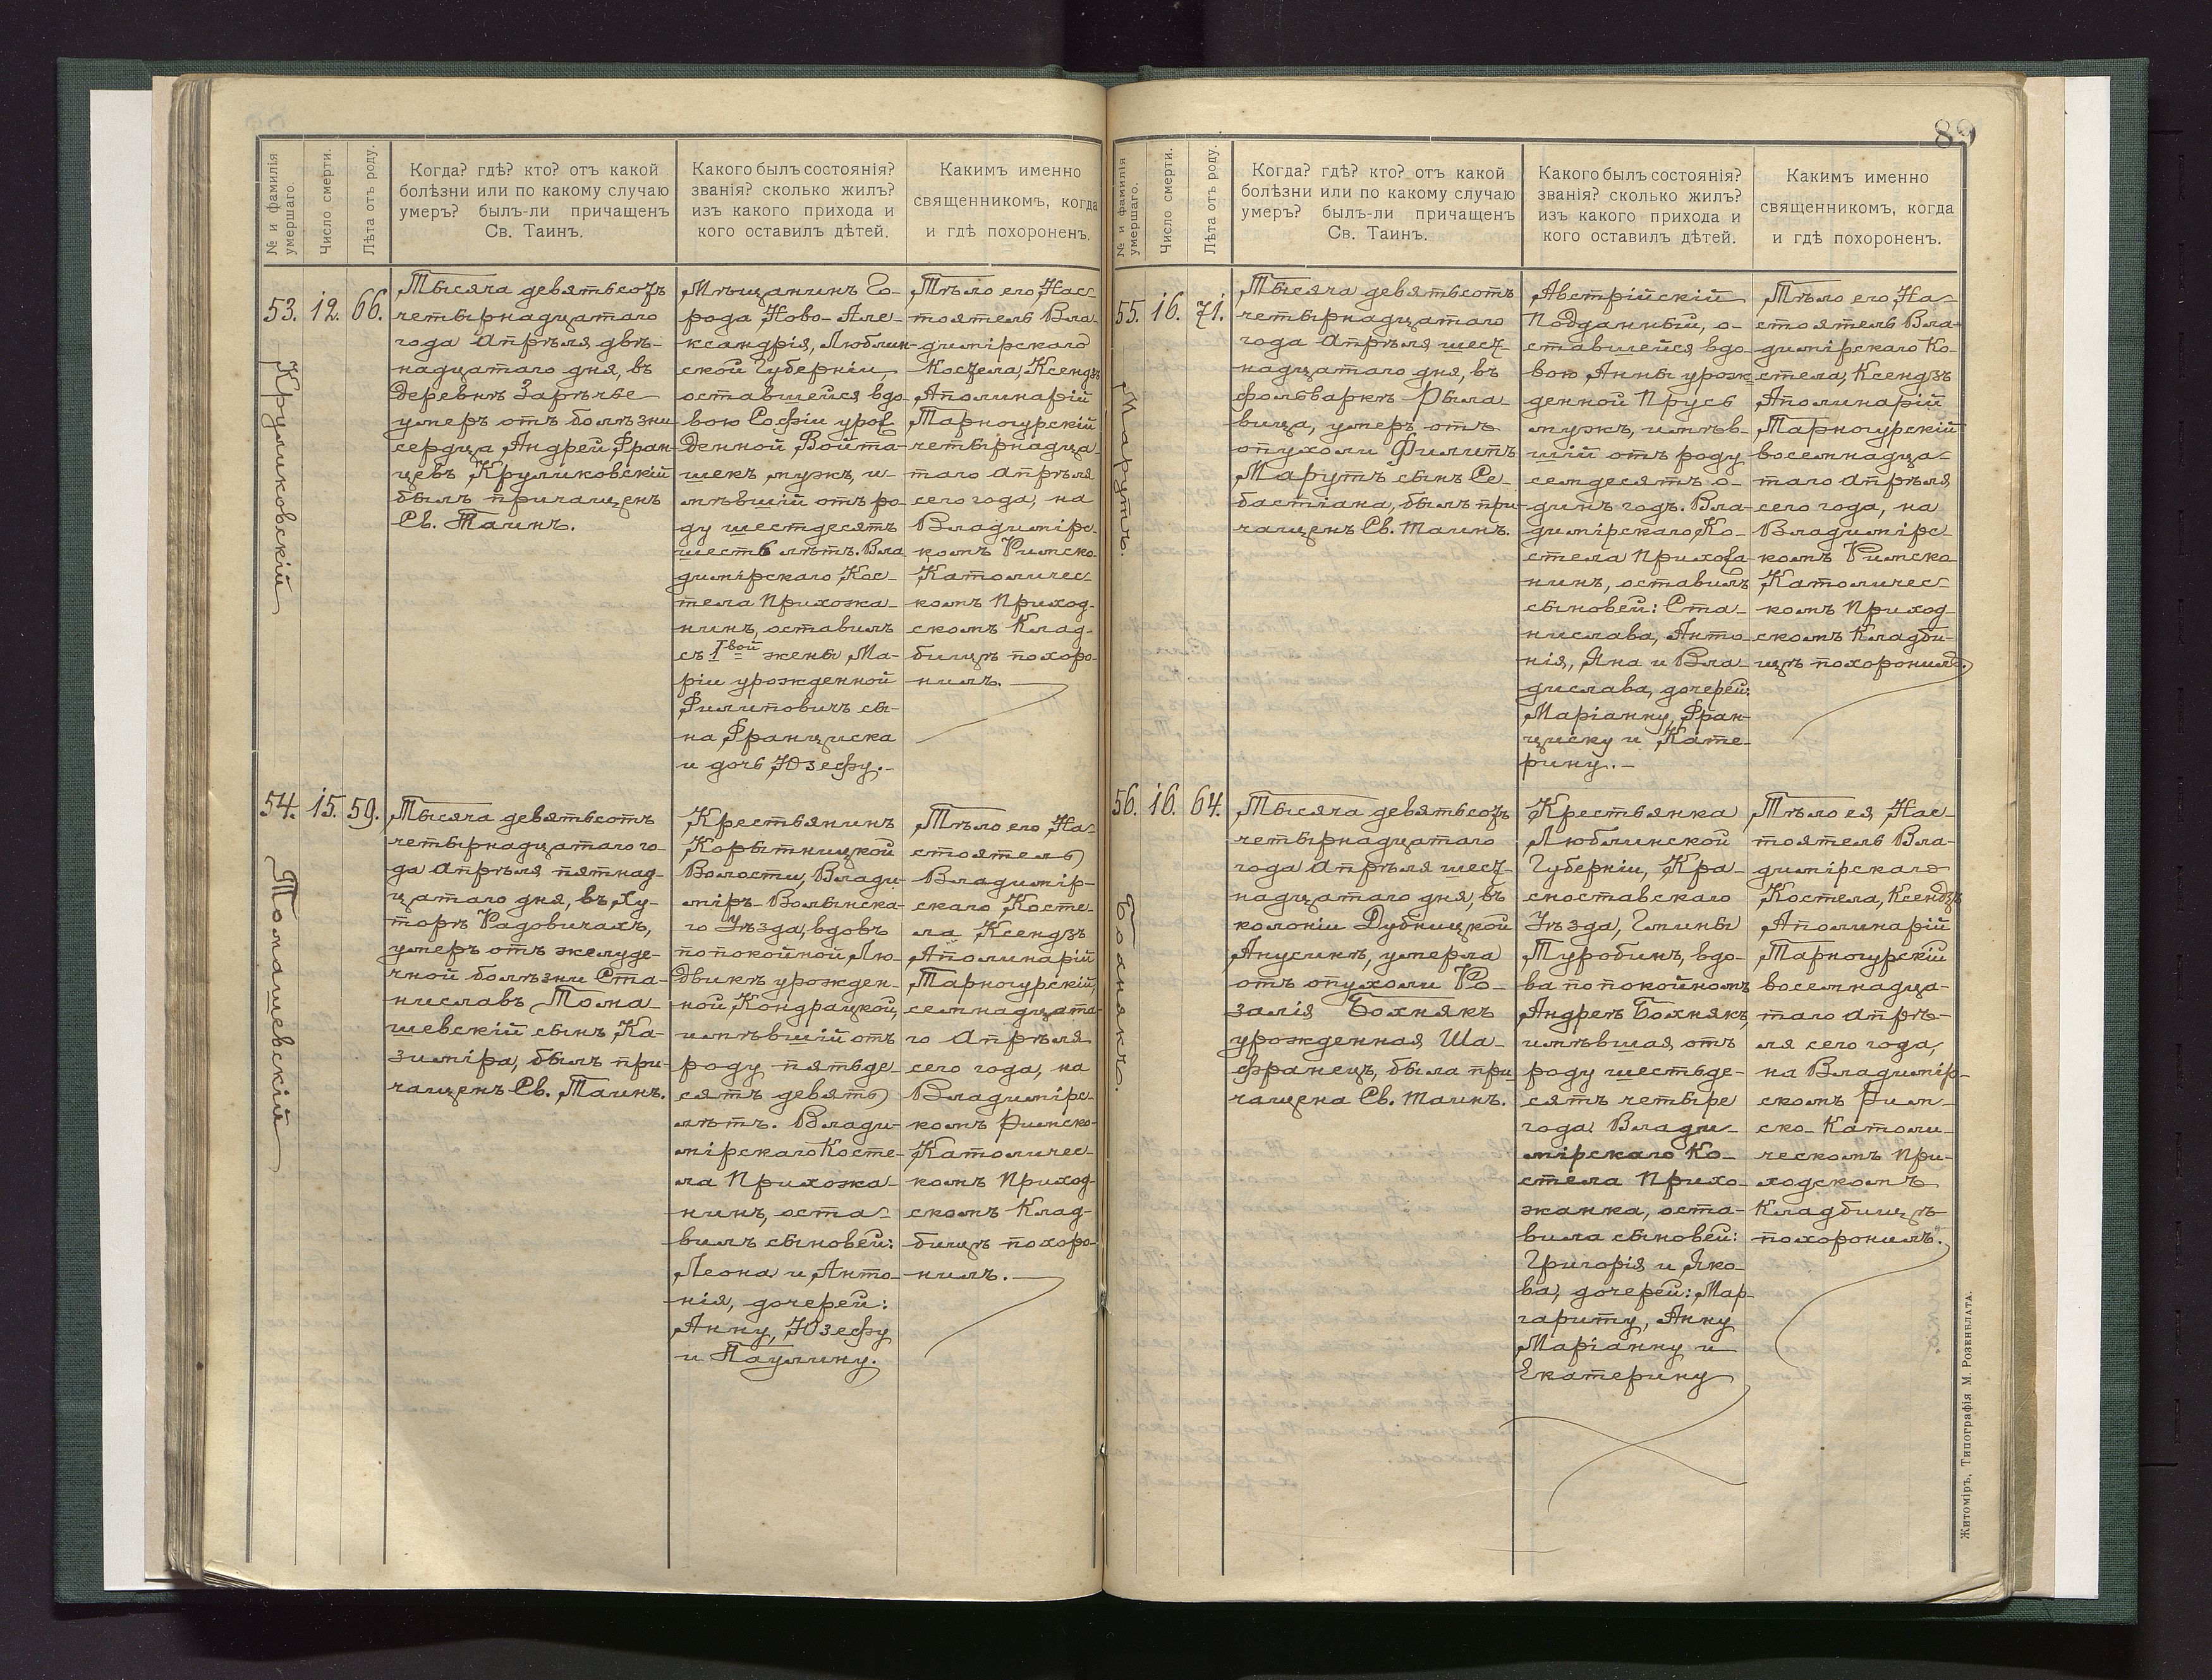 № и фамилія
умершаго.
Число смерти.
Лѣта отъ роду.
Когда? гдѣ? кто? отъ какой
болѣзни или по какому случаю
умеръ? былъ-ли причащенъ
Св. Таинъ.
Какого былъ состоянія?
званія? сколько жилъ?
изъ какого прихода и
кого оставилъ дѣтей.
Какимъ именно
священникомъ, когда
и гдѣ похороненъ.
53.
Круликовскій
12.
66.
Тысяча девятьсотъ
четырнадцатаго
года Апрѣля двѣ-
надцатаго дня, въ
деревнѣ Зарѣчье
умеръ отъ болѣзни
сердца Андрей Фран-
цевъ Круликовскій
былъ причащенъ
Св. Таинъ.
Мѣщанинъ Го-
рода Ново-Але-
ксандрія, Люблин-
ской Губерніи
оставшейся вдо-
вою Софіи урож-
денной Войта-
шекъ мужъ, и-
мѣвшій отъ ро-
ду шестдесятъ
шесть лѣтъ. Вла
димірскаго Кос-
тела Прихожа-
нинъ, оставилъ
съ 1вой жены Ма-
ріи урожденной
Филиповичъ сы-
на Франциска
и дочь Юзефу.-
Тѣло его Нас-
тоятель Вла-
димірскаго
Костела, Ксендзъ
Аполинарій
Тарногурскій
четырнадца-
таго Апрѣля
сего года, на
Владимірс-
комъ Римско-
Католичес-
комъ Приход-
скомъ Клад-
бищѣ похоро-
нилъ.
54.
Томашевскій
15.
59.
Тысяча девятьсотъ
четырнадцатаго го-
да Апрѣля пятнад-
цатаго дня, въ Ху-
торѣ Радовичахъ,
умеръ отъ желуде-
чной болѣзни Ста-
ниславъ Тома
шевскій сынъ Ка-
зиміра, былъ при-
чащенъ Св. Таинъ.
Крестьянинъ
Корытницкой
Волости, Влади-
міръ-Волынска-
го Уѣзда, вдовъ
по покойной Лю-
двикѣ урожден-
ной Кондрацкой,
имѣвшій отъ
роду пятьде-
сятъ девять
лѣтъ. Влади-
мірскаго Косте-
ла Прихожа-
нинъ, оста-
вилъ сыновей:
Леона и Анто-
нія, дочерей:
Анну, Юзефу
и Паулину.
Тѣло его На-
стоятель
Владимір-
скаго Косте-
ла Ксендзъ
Аполинарій
Тарногурскій,
семнадцата-
го Апрѣля
сего года, на
Владимірс-
комъ Римско-
Католичес-
комъ Приход-
скомъ Клад-
бищѣ похоро-
нилъ.
89
№ и фамилія
умершаго.
Число смерти.
Лѣта отъ роду.
Когда? гдѣ? кто? отъ какой
болѣзни или по какому случаю
умеръ? былъ-ли причащенъ
Св. Таинъ.
Какого былъ состоянія?
званія? сколько жилъ?
изъ какого прихода и
кого оставилъ дѣтей.
Какимъ именно
священникомъ, когда
и гдѣ похороненъ.
55.
Марутъ.
16.
71.
Тысяча девятьсотъ
четырнадцатаго
года Апрѣля шест-
надцатаго дня, въ
фольваркѣ Рыла-
вица, умеръ отъ
опухоли Филипъ
Марутъ сынъ Се-
бастіана, былъ при-
чащенъ Св. Таинъ.
Австрійскій
Подданный, о-
ставшейся вдо-
вою Анны урож-
денной Прусь
мужъ, имѣв-
шій отъ роду
семдесятъ о-
динъ годъ. Вла-
димірскаго Ко-
стела Прихожа-
нинъ, оставилъ
сыновей: Ста-
нислава, Анто-
нія, Яна и Вла-
дислава, дочерей:
Маріанну, Фран-
циску и Кате-
рину.-
Тѣло его На-
стоятель Вла-
димірскаго Ко-
стела, Ксендзъ
Аполинарій
Тарногурскій
восемнадца-
таго Апрѣля
сего года, на
Владимірс-
комъ Римско
Католичес-
комъ Приход-
скомъ Кладби-
щѣ похоронилъ.
56.
Бохнякъ.
16.
64.
Тысяча девятьсотъ
четырнадцатаго
года Апрѣля шест-
надцатаго дня, въ
колоніи Дубницкой
Анусинъ, умерла
отъ опухоли Ро-
залія Бохнякъ
урожденная Ша-
франецъ, была при
чащена Св. Таинъ.
Крестьянка
Люблинской
Губерніи, Кра-
сноставскаго
Уѣзда, Гмины
Туробинъ, вдо-
ва по покойномъ
Андреѣ Бохнякъ,
имѣвшая отъ
роду шестьде-
сятъ четыре
года. Влади-
мірскаго Ко-
стела Прихо-
жанка, оста-
вила сыновей:
Григорія и Яко-
ва, дочерей: Мар-
гариту, Анну
Маріанну и
Екатерину
Тѣло ея Нас-
тоятель Вла-
димірскаго
Костела, Ксендзъ
Аполинарій
Тарногурскій
восемнадца-
таго Апрѣ-
ля сего года,
на Владимір-
скомъ Рим-
ско-Католи-
ческомъ При-
ходскомъ
Кладбищѣ
похоронилъ.
Житоміръ, Типографія М. Розенблата.